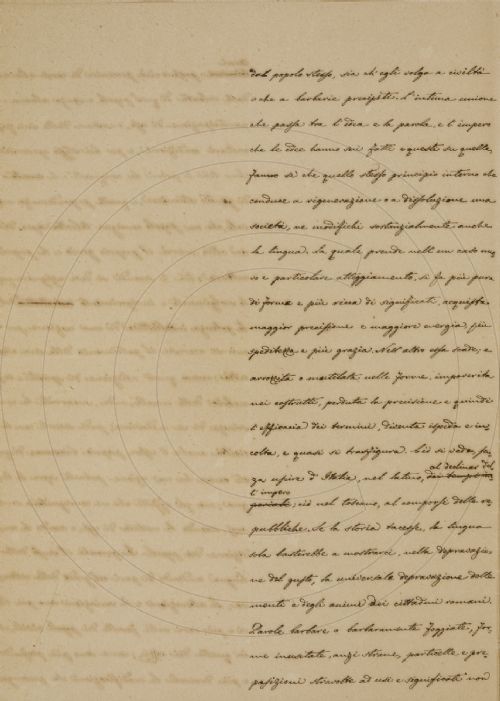 del popolo stesso, sia ch'egli volga a civiltà
o che a barbarie precipiti. L'intima unione
che passa tra l'idea e la parola, e l'impero
che le idee hanno sui fatti e questi su quelle,
fanno sì che quello stesso principio interno che
conduce a rigenerazione o a dissoluzione una
società, ne modifichi sostanzialmente anche
la lingua. La quale prende nell'un caso nuo-
vo e particolare atteggiamento, si fa più pura
di forme e più ricca di significati, acquista
maggior precisione e maggiore energia, più
speditezza e più grazia. Nell'altro essa scade; e
arrozzita o mutilata nelle forme, impoverita
nei costrutti, perduta la precisione e quindi
l'efficacia dei termini, diventa ispida e in-
colta, e quasi si trasfigura. Ciò si vede, sen-
za uscire d'Italia, nel latino, al declinar del-
l'impero
; ciò nel toscano, al comporse delle re-
pubbliche. Se la storia tacesse, la lingua
sola basterebbe a mostrarci, nella depravazio-
ne del gusto, la universale depravazione delle
menti e degli animi dei cittadini romani.
Parole barbare o barbaramente foggiate, for-
me inusitate, anzi strane, particelle e pre-
posizioni stravolte ad usi e significati non